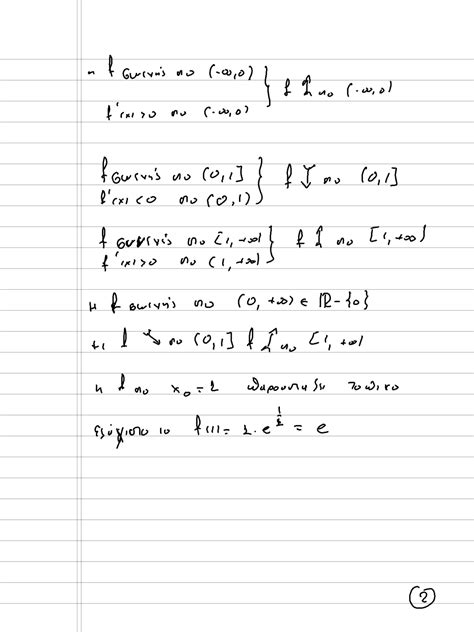 η f συνεχής στο (-∞,0) } f ↑ στο (-∞,0)
f'(x)>0 στο (-∞,0)
f συνεχής στο (0,1] } f ↓ στο (0,1]
f'(x)<0 στο (0,1)
f συνεχής στο [1,+∞) } f ↑ στο [1,+∞)
f'(x)>0 στο (1,+∞)
η f συνεχής στο (0,+∞) ∈ ℝ-{0}
f ↘ στο (0,1] f ↑ στο [1,+∞)
η f στο x₀=1 παρουσιάζει τοπικο
ελάχιστο το f(1)= 1·e^{1/1} = e
2